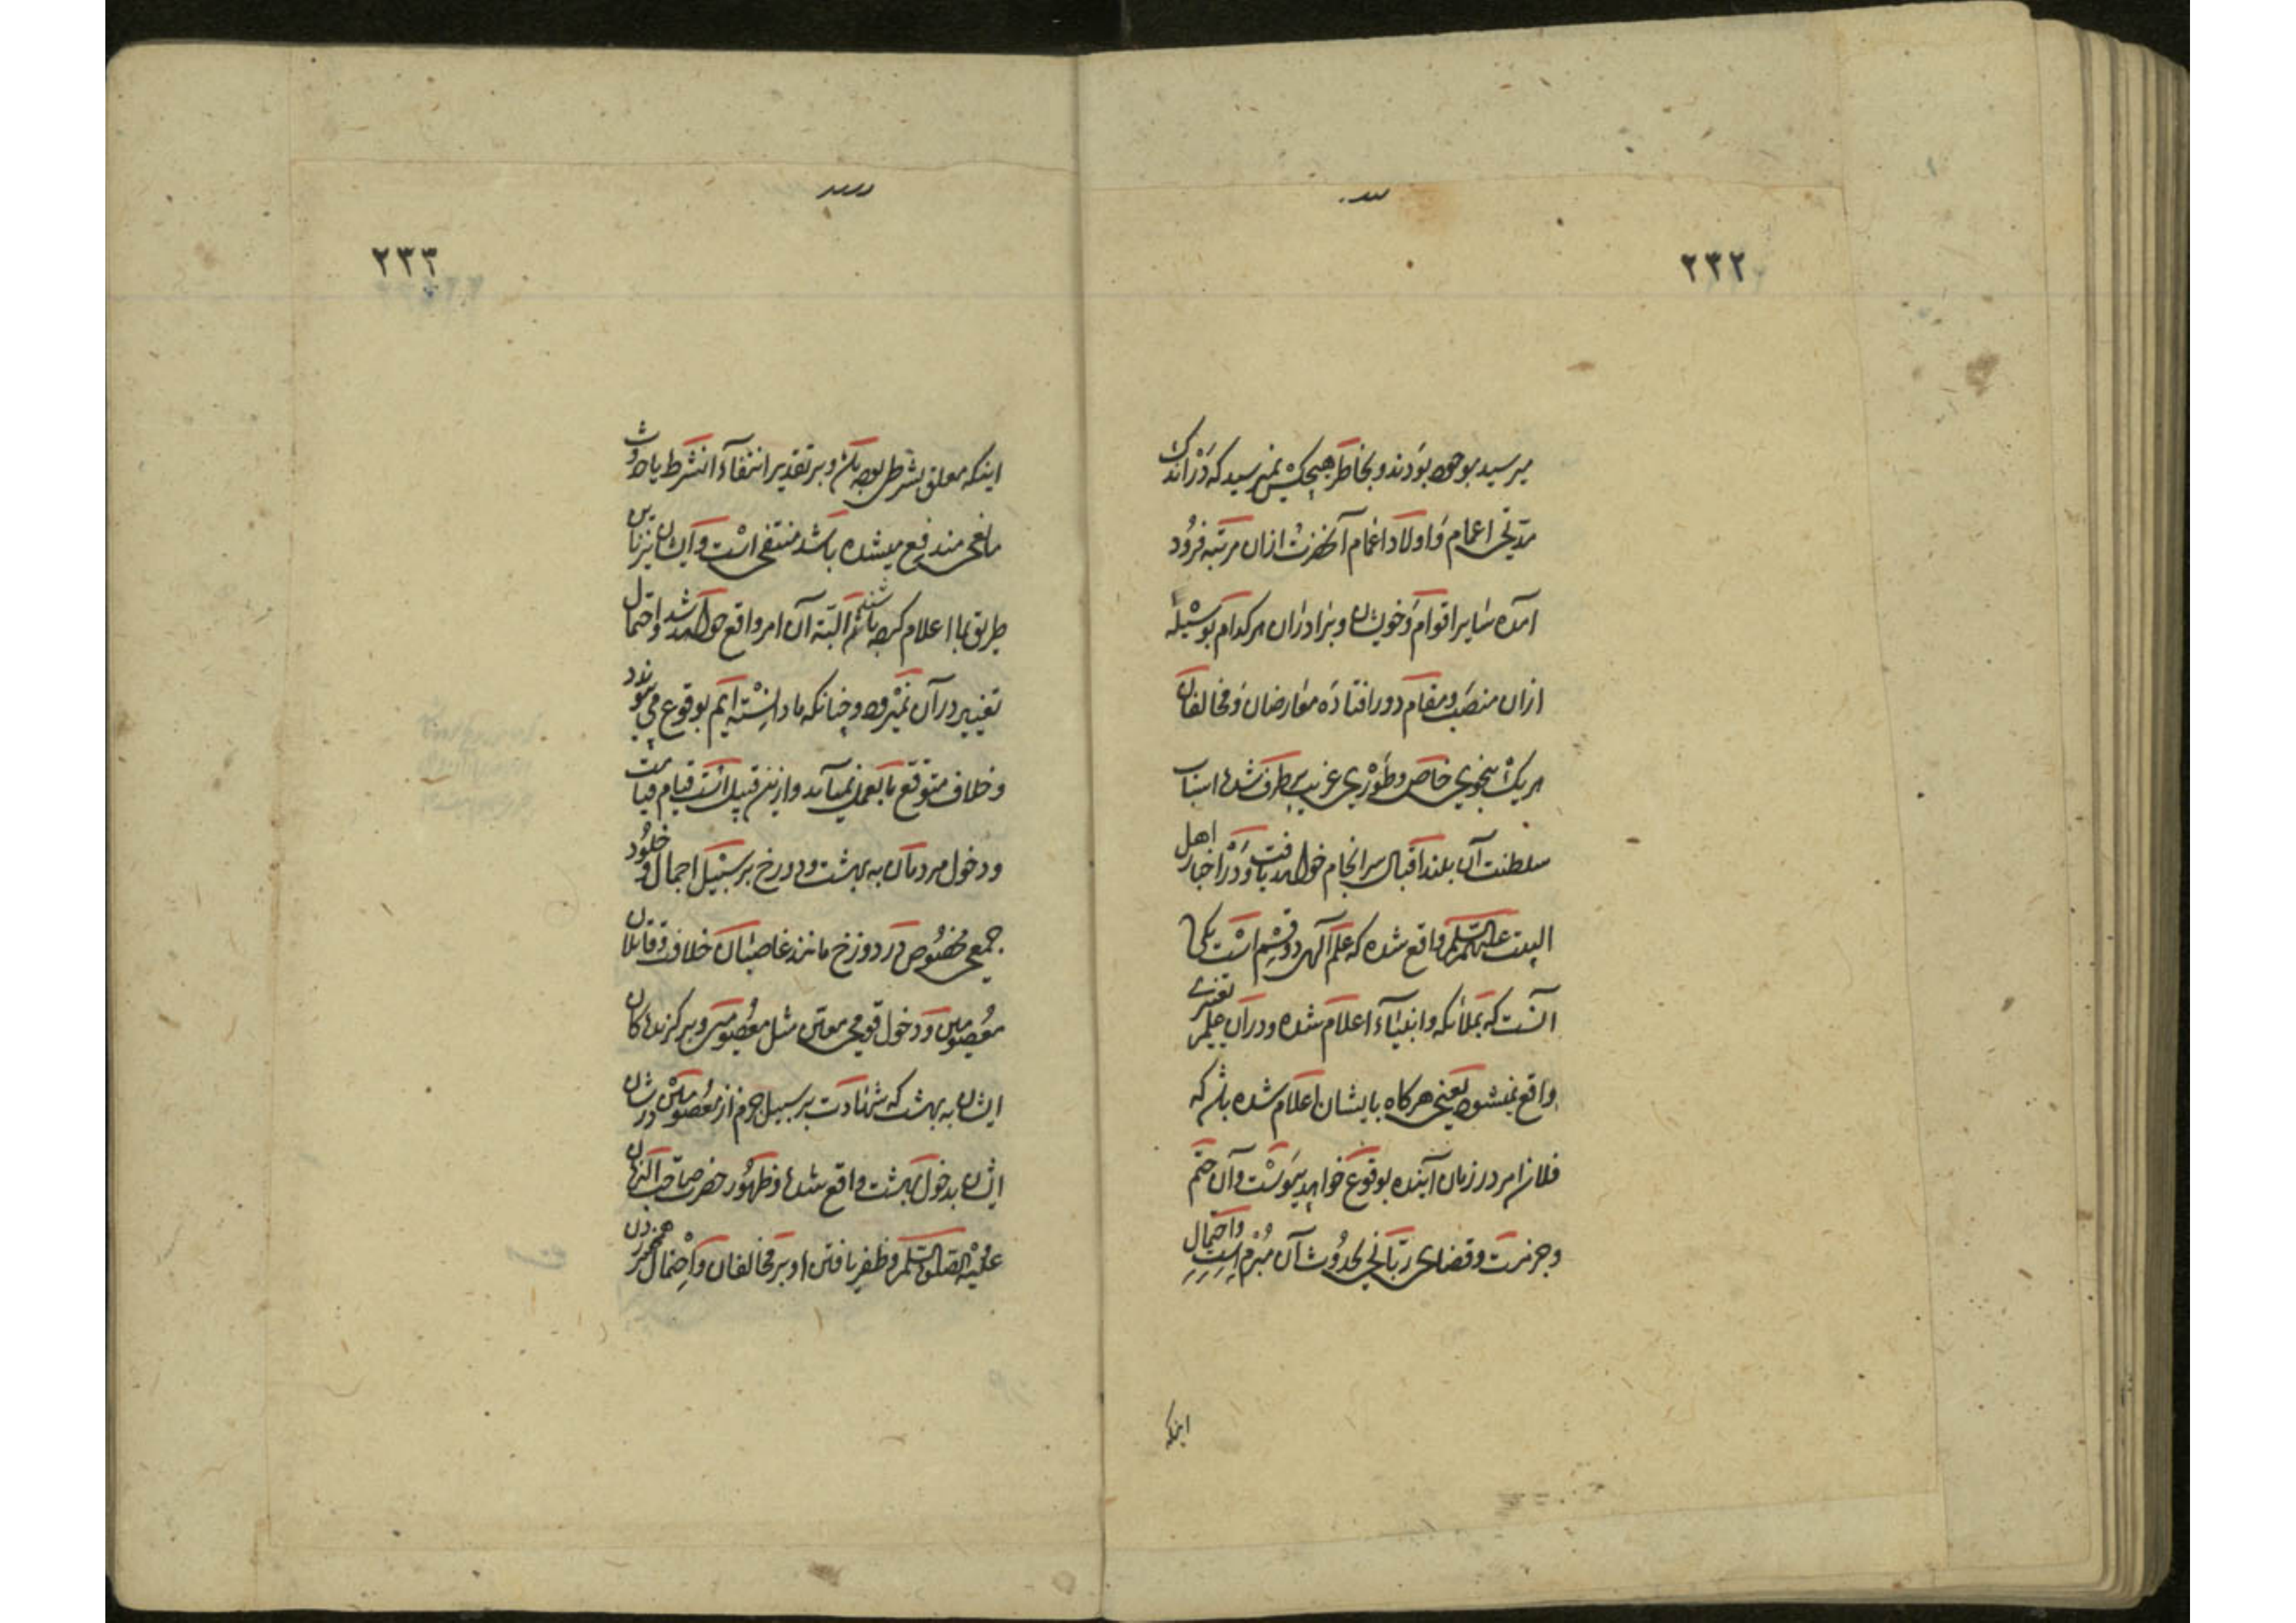 ۲۳۲
میرسید بوجود بودند و بخاطر هیچکس نمیرسید که در اندک
مدتی اعمام و اولاد اعمام آنحضرت ازان مرتبه فرود
آمده سایر اقوام و خویشان و برادران هرکدام بوسیلهٔ
ازان منصب و مقام دور افتاده معارضان و مخالفان
هریک بنحوی خاص و طوری غریب برطرف شده اسباب
سلطنت آن بلند اقبال سرانجام خواهد یافت و در اخبار اهل
البیت علیهم السلام واقع شده که علم الهی دو قسم است یکی
آنست که بملائکه و انبیاء اعلام شده و در آن علم تغییری
واقع نمیشود یعنی هرکاه بایشان اعلام شده باشد که
فلان امر در زمان آینده بوقوع خواهد پیوست و آن حتم
و جزمست و قضای ربانی بحدوث آن مبرم است و احتمال
اینکه
۲۳۳
اینکه معلق بشرطی بوده باشد و بر تقدیر انتفاء آنشرط یا حدوث
مانعی مندفع میشده باشد منتفی است و ایشان نیز باین
طریق بما اعلام کرده باشند البته آن امر واقع خواهد شد و احتمال
تغییر در آن نمیرود و چنانکه ما دانسته ایم بوقوع می پیوندد
و خلاف متوقع ما بعمل نمیآید و ازین قبیل است قیام قیامت
و دخول مردمان به بهشت و دوزخ بر سبیل اجمال و خلود
جمعی مخصوص در دوزخ مانند غاصبان خلافت و قاتلان
معصومین و دخول قومی معین مثل معصومین و برکزیدهکان
ایشان به بهشت که شهادت بر سبیل جزم از معصومین در شان
ایشان بدخول بهشت واقع شده و ظهور حضرت صاحب الزمان
علیه الصلوة والسلام و ظفر یافتن او بر مخالفان و احتمال